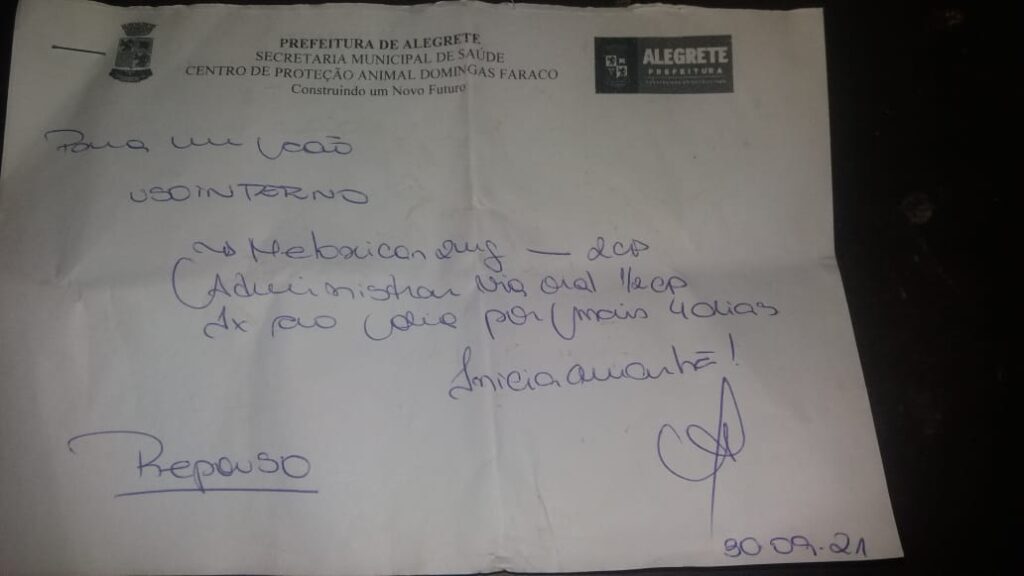 PREFEITURA DE ALEGRETE
SECRETARIA MUNICIPAL DE SAÚDE
CENTRO DE PROTEÇÃO ANIMAL DOMINGAS FARACO
Construindo um Novo Futuro
ALEGRETE
PREFEITURA
Para um cão
USO INTERNO
→ Meloxicam 2mg — 2cp
Administrar via oral 1/2cp
1x ao dia por mais 4 dias
Iniciar amanhã!
Repouso
30 09.21